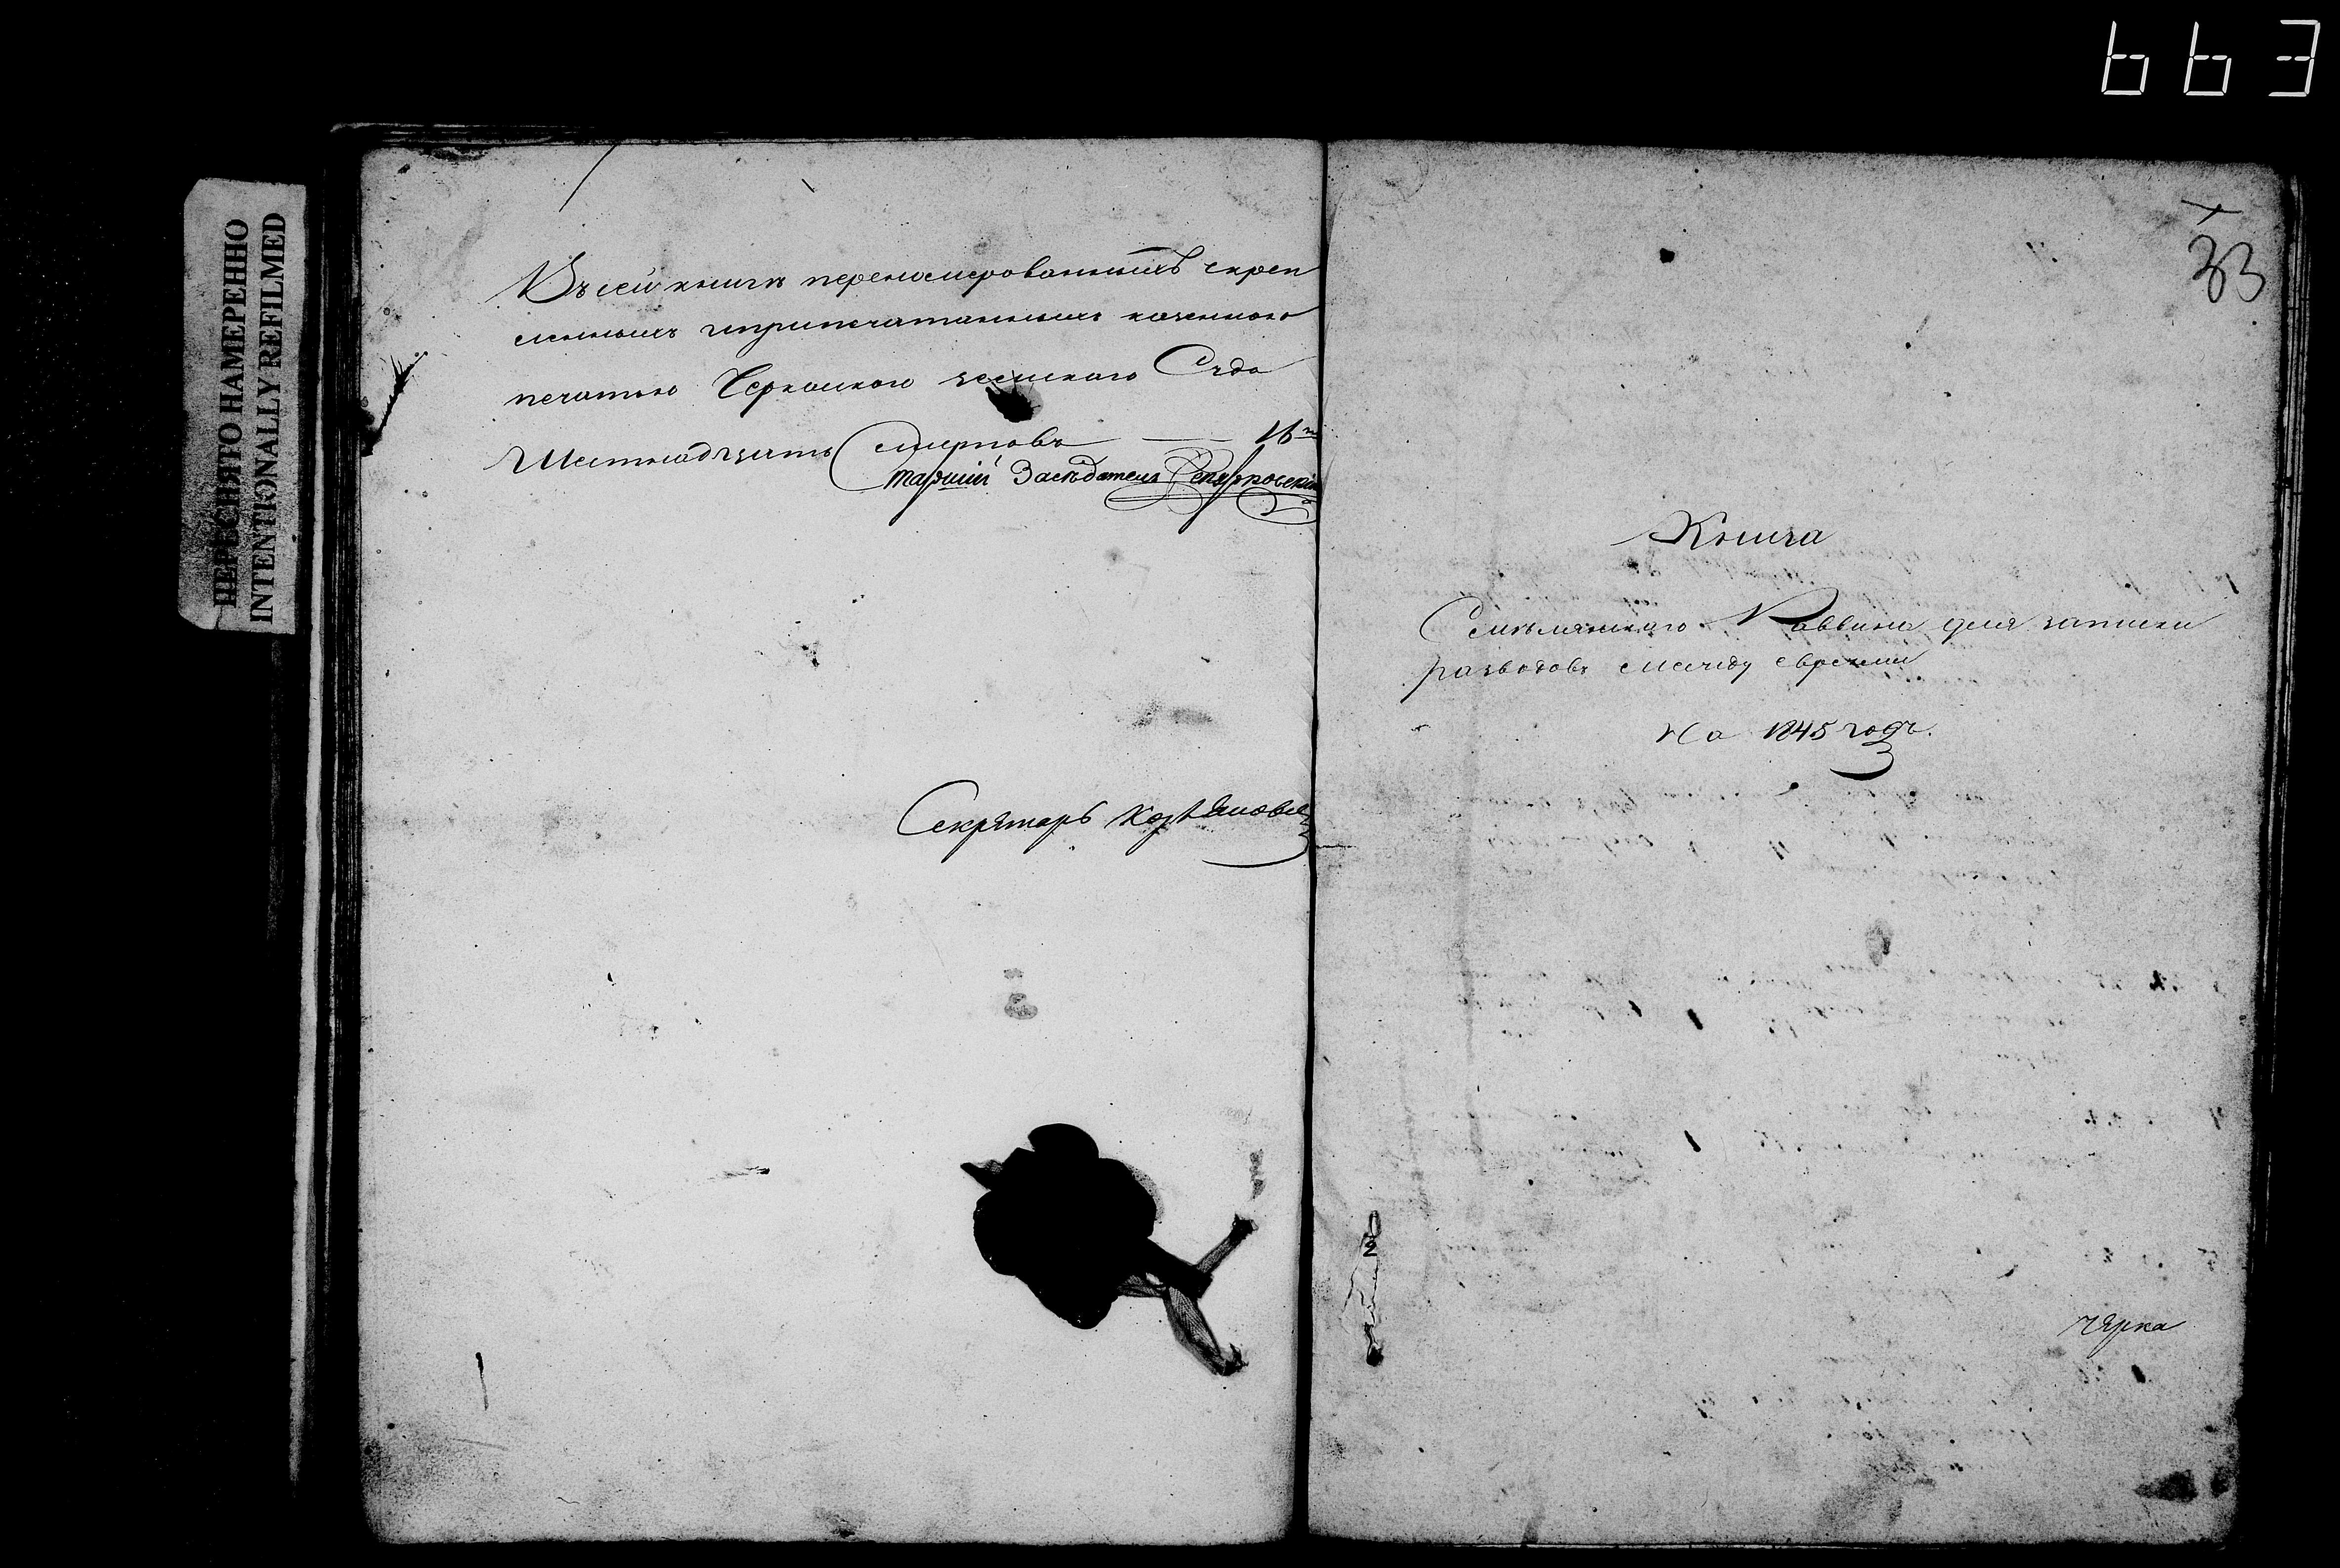 663
ПЕРЕСНЯТО НАМЕРЕННО
INTENTIONALLY REFILMED
Въ сей книгѣ перенумерованныхъ скреп
ленныхъ и припечатанныхъ казенною
печатью Черкаскаго земскаго Суда
Шестнадцать листовъ — 16
Старшій Засѣдатель
Секретарь
33
Книга
Смѣлянскаго Раввина для записки
разводовъ между евреями
На 1845 годъ.
2